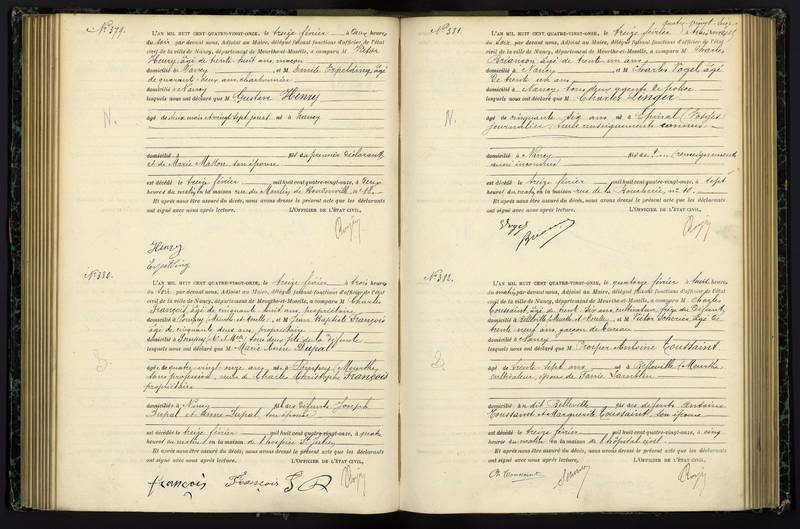 N° 379.
L'AN MIL HUIT CENT QUATRE-VINGT-ONZE, le treize février, à deux heures
du soir par devant nous, Adjoint au Maire, délégué faisant fonctions d'officier de l'état
civil de la ville de Nancy, département de Meurthe-et-Moselle, a comparu M Victor
Henry, âgé de trente huit ans, maçon
domicilié à Nancy, et M Emile Expelding, âgé
de quarante deux ans, charbonnier
domicilié à Nancy
lesquels nous ont déclaré que M Gustave Henry
N.
âgé de deux mois vingt sept jours né à Nancy
domicilié à fils du premier déclarant
et de Marie Mathon son épouse
est décédé le treize février qu'il huit cent quatre-vingt-onze, à
heures du matin en la maison rue du Moulin de Boudonville, n° 18
Et après nous être assuré du décès, nous avons dressé le présent acte que les déclarants
ont signé avec nous après lecture. L'OFFICIER DE L'ÉTAT CIVIL,
Henry
Expelding
N° 380.
L'AN MIL HUIT CENT QUATRE-VINGT-ONZE, le treize février à trois heures
du soir, par devant nous, Adjoint au Maire, délégué faisant fonctions d'officier de l'état
civil de la ville de Nancy, département de Meurthe-et-Moselle, a comparu M Charles
François, âgé de cinquante huit ans, propriétaire
domicilié à Pompey (Meurthe et Moselle), et M Jean Baptiste François
âgé de cinquante deux ans, propriétaire
domicilié à tous deux fils de la défunte
lesquels nous ont déclaré que M Marie Anne Dupal
âgée de quatre vingt onze ans, née à Pompey (Meurthe)
sans profession, veuve de Charles Christophe François
propriétaire
domiciliée à Nancy fille des défunts Joseph
Dupal et Anne Dupal, son épouse
est décédée le treize février qu'il huit cent quatre-vingt-onze, à quatre
heures du matin, en la maison de l'hospice St Julien
Et après nous être assuré du décès, nous avons dressé le présent acte que les déclarants
ont signé avec nous après lecture. L'OFFICIER DE L'ÉTAT CIVIL,
françois François
quatre-vingt-onze
N° 381.
L'AN MIL HUIT CENT QUATRE-VINGT-ONZE, le treize février, à trois heures
du soir par devant nous, Adjoint au Maire, délégué faisant fonctions d'officier de l'état
civil de la ville de Nancy, département de Meurthe-et-Moselle, a comparu M Charles
Briançon âgé de trente un ans,
domicilié à Nancy, et M Charles Vogel, âgé
de trente un ans
domicilié à Nancy, tous deux agents de police
lesquels nous ont déclaré que M Charles Linger
N.
âgé de cinquante six ans né à Epinal (Vosges)
journalier, seuls renseignements connus.
domicilié à Nancy fils de ? (renseignements
domicilié inconnus)
est décédé le treize février qu'il huit cent quatre-vingt-onze, à sept
heures du matin, en la maison rue de la n° 10.
Et après nous être assuré du décès, nous avons dressé le présent acte que les déclarants
ont signé avec nous après lecture. L'OFFICIER DE L'ÉTAT CIVIL,
Vogel
N° 382.
L'AN MIL HUIT CENT QUATRE-VINGT-ONZE, le quatorze février à huit heures
du matin, par devant nous, Adjoint au Maire, délégué faisant fonctions d'officier de l'état
civil de la ville de Nancy, département de Meurthe-et-Moselle, a comparu M Charles
Toussaint, âgé de trente six ans, cultivateur, frère du défunt,
domicilié à Belleville (Meurthe et Moselle), et M Victor Scherrer âgé de
trente neuf ans, garçon de bureau
domicilié à Nancy
lesquels nous ont déclaré que M Prosper Antoine Toussaint
âgé de trente sept ans né à Belleville (Meurthe)
cultivateur, époux de Fanie Lamblin
domicilié au dit Belleville fils des défunts Antoine
Toussaint et Marguerite Toussaint, son épouse
est décédé le treize février qu'il huit cent quatre-vingt-onze, à cinq
heures du matin en la maison de l'hôpital civil
Et après nous être assuré du décès, nous avons dressé le présent acte que les déclarants
ont signé avec nous après lecture. L'OFFICIER DE L'ÉTAT CIVIL,
Ch Toussaint